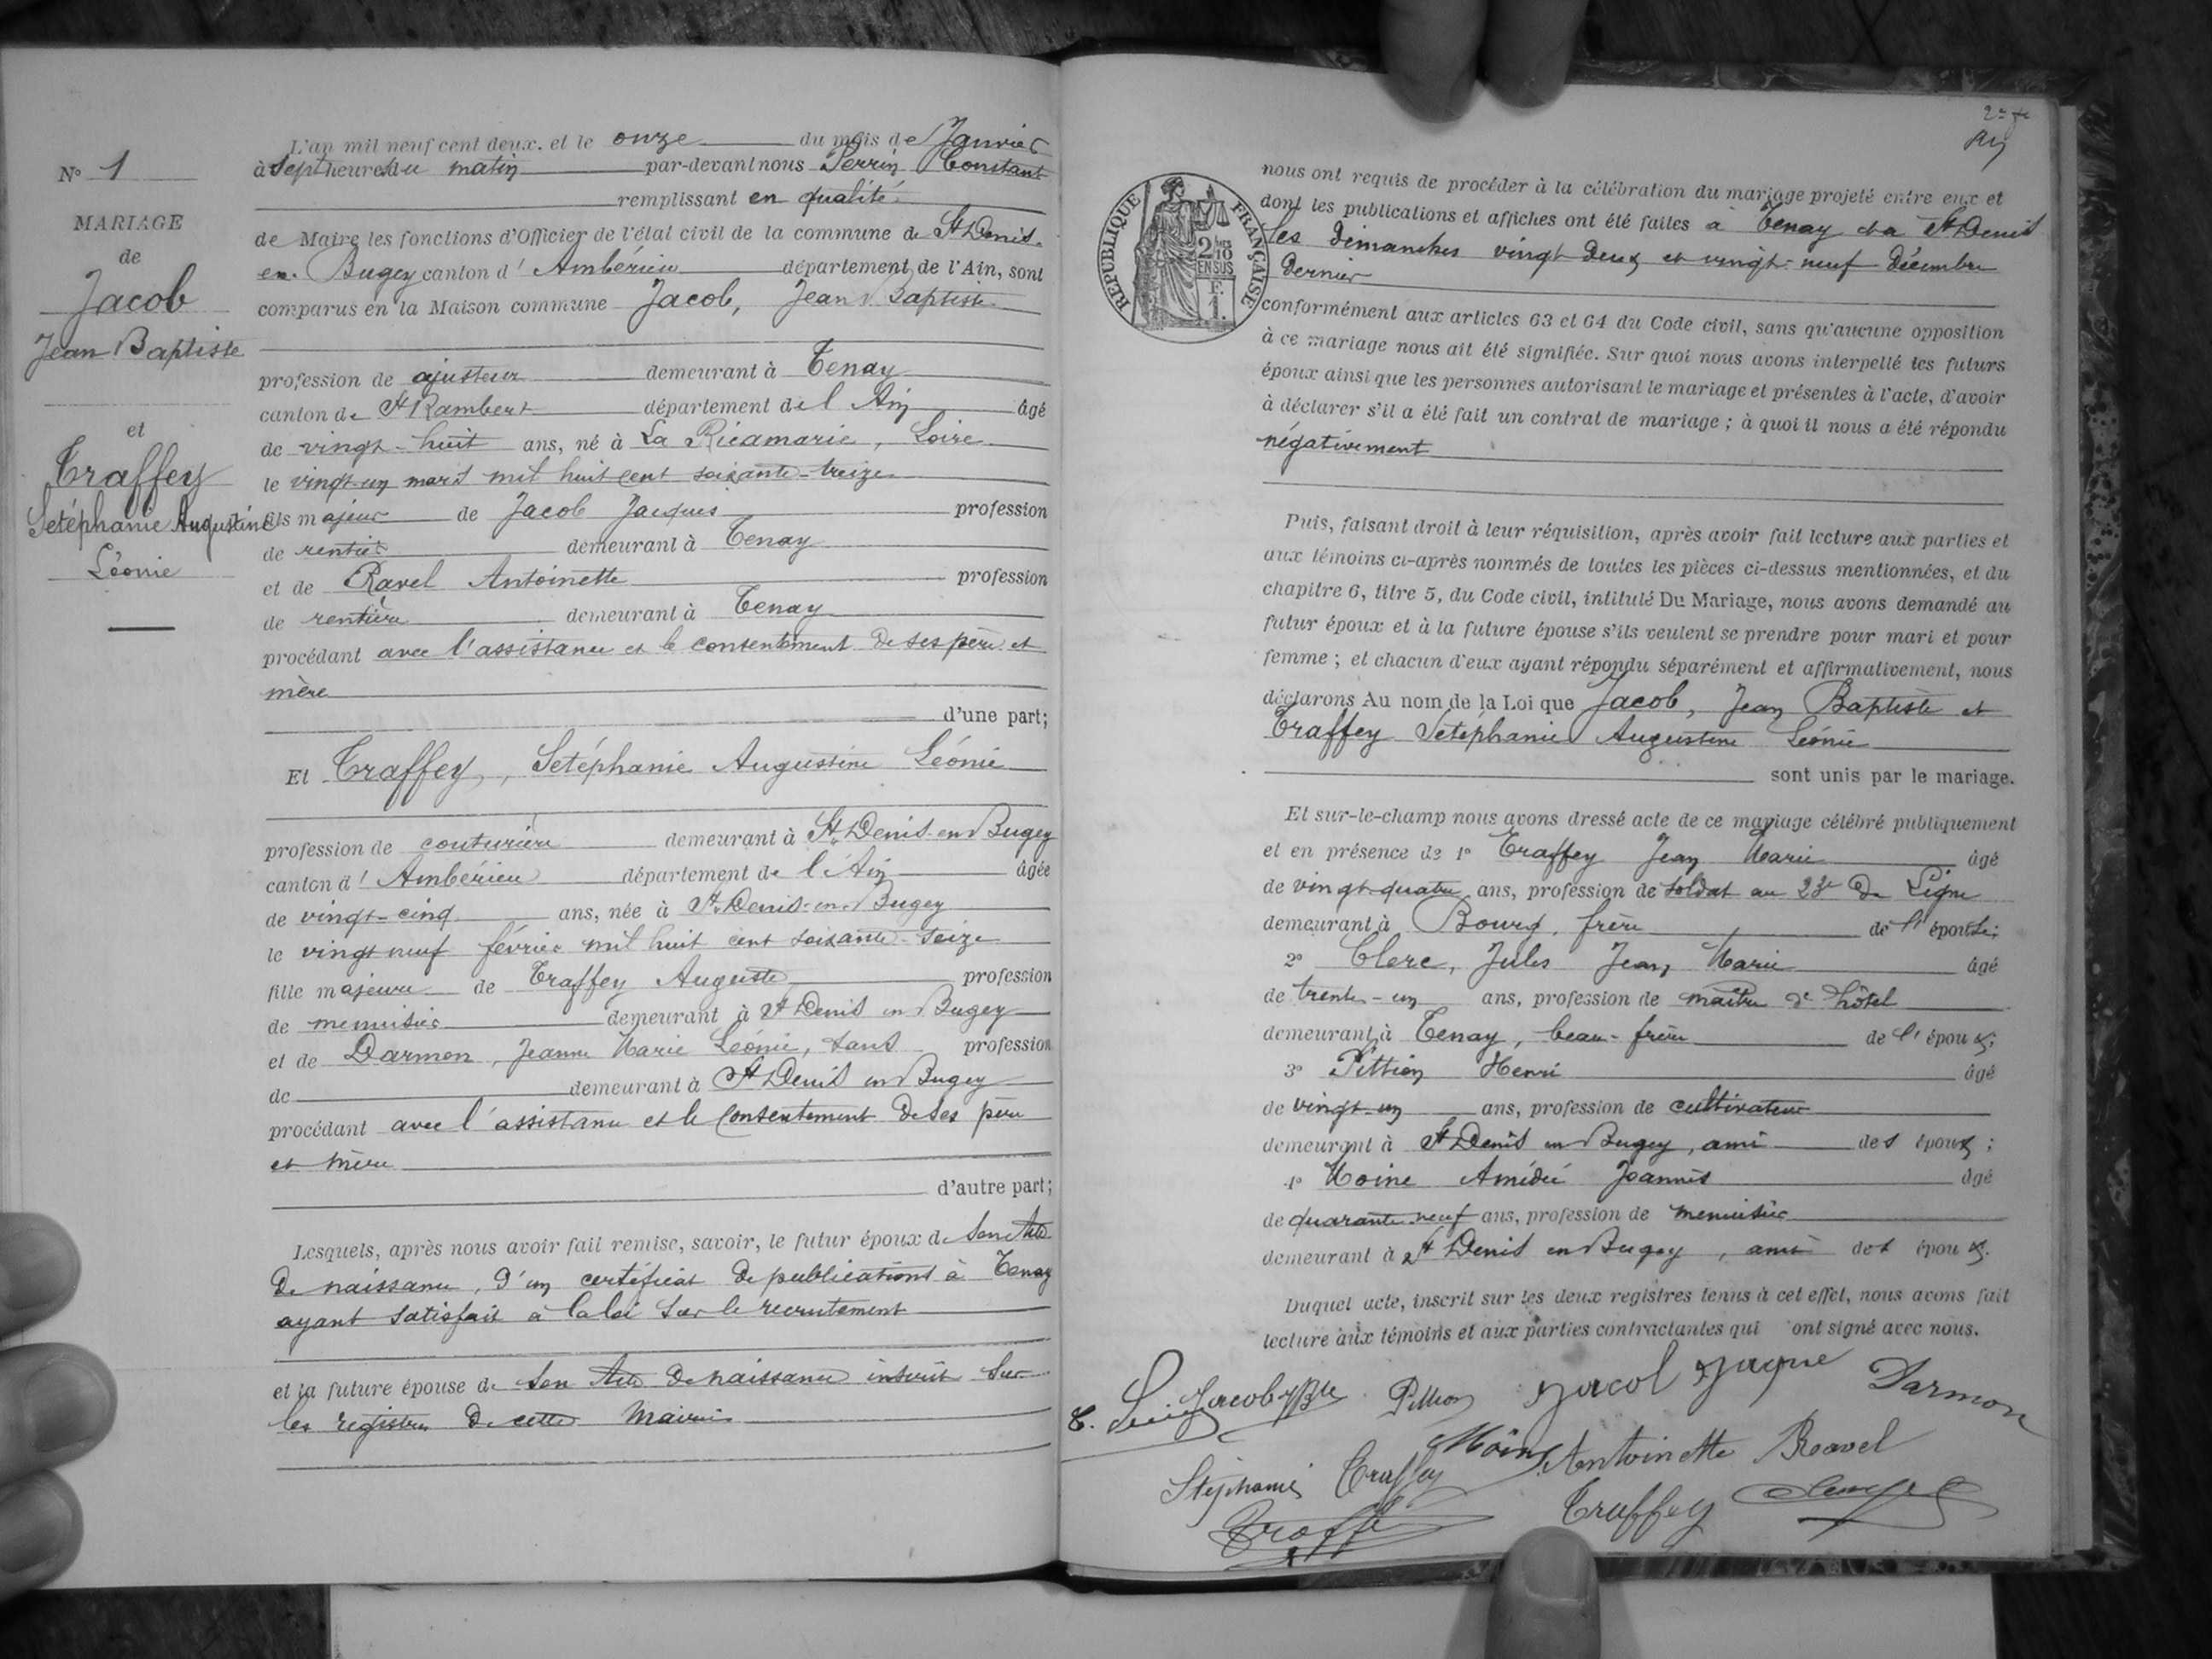 N° 1
MARIAGE
de
Jacob
Jean Baptiste
et
Traffey
Setéphanie Augustine
Léonie
L'an mil neuf cent deux. et le onze du mois de Janvier
à sept heures du matin par-devant nous Perrin Constant
remplissant en qualité
de Maire les fonctions d'Officier de l'état civil de la commune de St Denis-
en-Bugey canton d'Ambérieu département de l'Ain, sont
comparus en la Maison commune Jacob, Jean Baptiste
profession de ajusteur demeurant à Tenay
canton de St Rambert département de l'Ain âgé
de vingt-huit ans, né à La Ricamarie, Loire
le vingt-un mars mil huit cent soixante-treize
fils majeur de Jacob Jacques profession
de rentier demeurant à Tenay
et de Ravel Antoinette profession
de rentière demeurant à Tenay
procédant avec l'assistance et le consentement de ses père et
mère
d'une part;
Et Traffey, Setéphanie Augustine Léonie
profession de couturière demeurant à St Denis-en-Bugey
canton d'Ambérieu département de l'Ain âgée
de vingt-cinq ans, née à St Denis-en-Bugey
le vingt neuf février mil huit cent soixante-seize
fille majeure de Traffey Auguste profession
de menuisier demeurant à St Denis en Bugey
et de Darmon, Jeanne Marie Léonie, sans profession
de demeurant à St Denis en Bugey
procédant avec l'assistance et le consentement de ses père
et mère
d'autre part;
Lesquels, après nous avoir fait remise, savoir, le futur époux de son Acte
de naissance, d'un certificat de publications à Tenay
ayant satisfait à la loi sur le recrutement
et la future épouse de son Acte de naissance inscrit sur
les registres de cette Mairie
2e
RÉPUBLIQUE FRANÇAISE
2 10
EN SUS
F.
1.
nous ont requis de procéder à la célébration du mariage projeté entre eux et
dont les publications et affiches ont été faites à Tenay et à St Denis
les dimanches vingt deux et vingt-neuf décembre
dernier
conformément aux articles 63 et 64 du Code civil, sans qu'aucune opposition
à ce mariage nous ait été signifiée. Sur quoi nous avons interpellé les futurs
époux ainsi que les personnes autorisant le mariage et présentes à l'acte, d'avoir
à déclarer s'il a été fait un contrat de mariage; à quoi il nous a été répondu
négativement
Puis, faisant droit à leur réquisition, après avoir fait lecture aux parties et
aux témoins ci-après nommés de toutes les pièces ci-dessus mentionnées, et du
chapitre 6, titre 5, du Code civil, intitulé Du Mariage, nous avons demandé au
futur époux et à la future épouse s'ils veulent se prendre pour mari et pour
femme; et chacun d'eux ayant répondu séparément et affirmativement, nous
déclarons Au nom de la Loi que Jacob, Jean Baptiste et
Traffey Setéphanie Augustine Léonie
sont unis par le mariage.
Et sur-le-champ nous avons dressé acte de ce mariage célébré publiquement
et en présence de 1° Traffey Jean Marie âgé
de vingt-quatre ans, profession de soldat au 23e de Ligne
demeurant à Bourg, frère de l'épouse;
2° Clerc, Jules Jean Marie âgé
de trente-un ans, profession de maître d'hôtel
demeurant à Tenay, beau-frère de l'époux;
3° Pittion Henri âgé
de vingt-un ans, profession de cultivateur
demeurant à St Denis en Bugey, ami des époux;
4° Moine Amédée Joannès âgé
de quarante-neuf ans, profession de menuisier
demeurant à St Denis en Bugey, ami des époux.
Duquel acte, inscrit sur les deux registres tenus à cet effet, nous avons fait
lecture aux témoins et aux parties contractantes qui ont signé avec nous.
Jacob JBte Pittion Jacob Jaque Darmon
Moine Antoinette Ravel
Stéphanie Traffey
Traffey